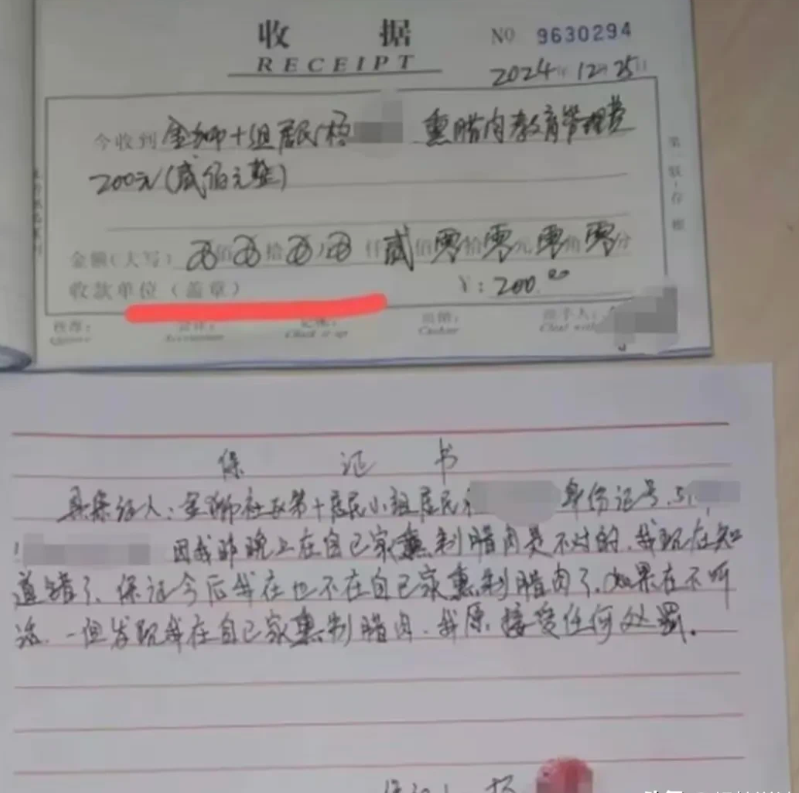 收据
RECEIPT
NO 9630294
2024年12月25日
今收到 金狮十组居民杨 熏腊肉教育管理费
200元(贰佰元整)
金额(大写) 佰 拾 万 仟 贰 佰 零 拾 零 元 零 角 零 分
收款单位(盖章) ¥:200.00
第一联:存根
核准: 会计: 记账: 出纳: 经手人:
Cashier
保证书
具保证人:金狮社区第十居民小组居民 身份证号:51
因我昨晚上在自己家熏制腊肉是不对的,我现在知
道错了、保证今后我在也不在自己家熏制腊肉了、如果在不听
话、一但发现我在自己家熏制腊肉、我愿接受任何处罚。